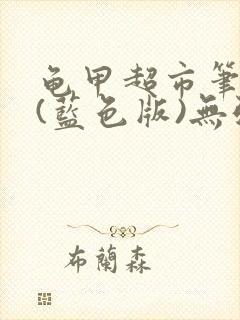 龜甲超市筆
(藍色版)無
布蘭森